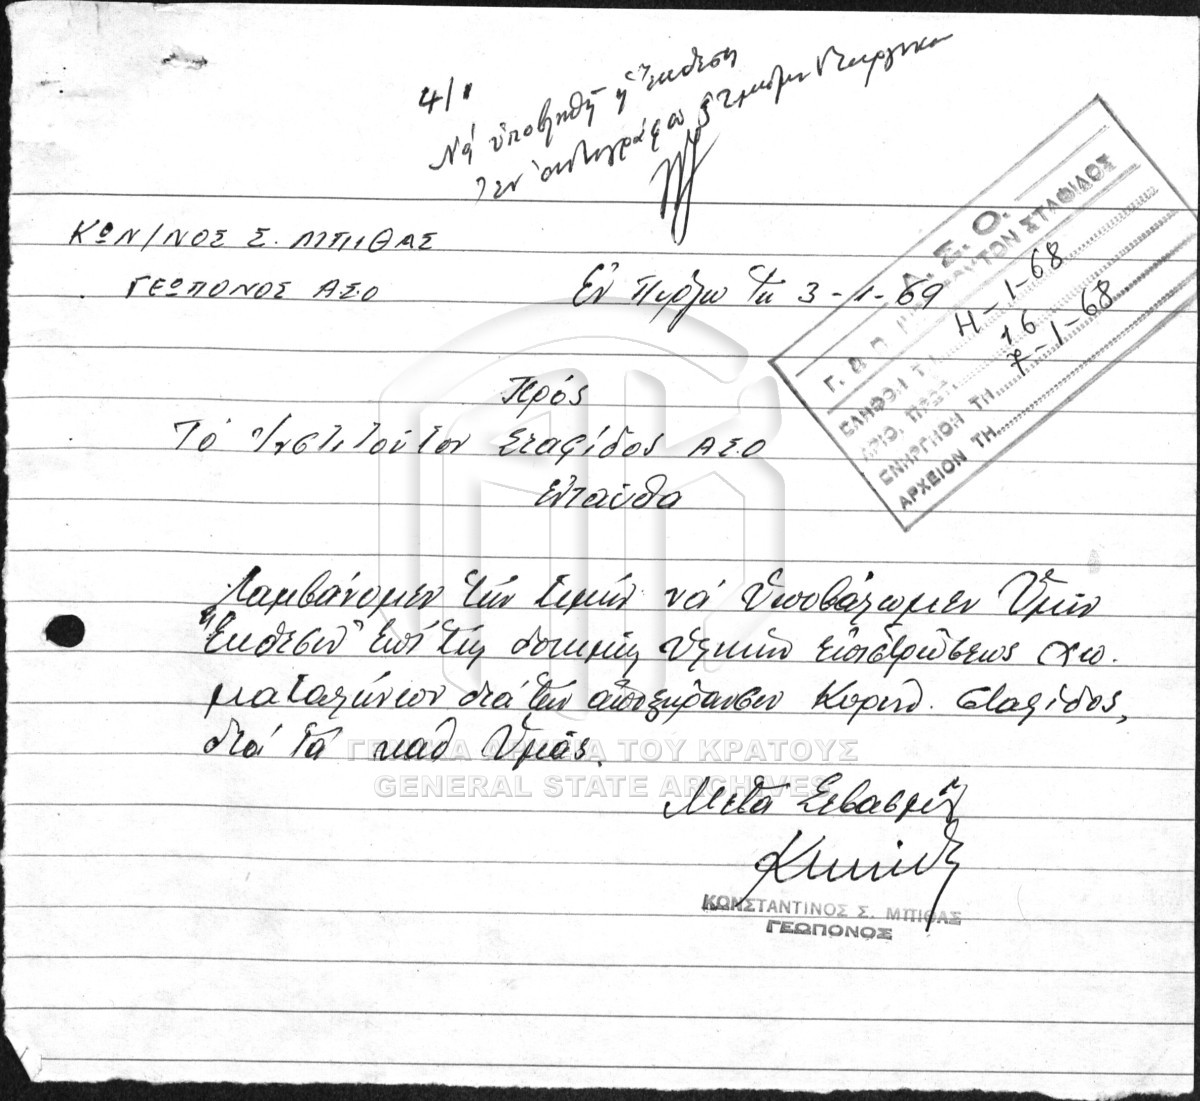 4/1
Νά ὑποβληθῇ ἡ Ἔκθεση
ἀντιγράφου
ΚΩΝ/ΝΟΣ Σ. ΜΠΙΘΑΣ
ΓΕΩΠΟΝΟΣ ΑΣΟ
Ἐν Πύργῳ τῇ 3-1-69
Α. Σ. Ο.
ΣΤΑΦΙΔΟΣ
ΕΛΗΦΘΗ ΤΗ 4-1-68
ΑΡΙΘ. ΠΡΩΤ. 16
ΕΝΗΡΓΗΘΗ ΤΗ 7-1-68
ΑΡΧΕΙΟΝ ΤΗ
Πρός
Τό Ἰνστιτοῦτον Σταφίδος ΑΣΟ
Ἐνταῦθα
Λαμβάνομεν τήν τιμήν νά ὑποβάλωμεν Ὑμῖν
"Ἔκθεσιν" ἐπί τῆς δοκιμῆς ὑλικῶν ἐπιστρώσεως χω-
ματαλώνιων διά τήν ἀποξήρανσιν Κορινθ. σταφίδος,
διά τά καθ' Ὑμᾶς.
ΓΕΝΙΚΑ ΑΡΧΕΙΑ ΤΟΥ ΚΡΑΤΟΥΣ
GENERAL STATE ARCHIVES
Μετά Σεβασμοῦ
ΚΩΝΣΤΑΝΤΙΝΟΣ Σ. ΜΠΙΘΑΣ
ΓΕΩΠΟΝΟΣ